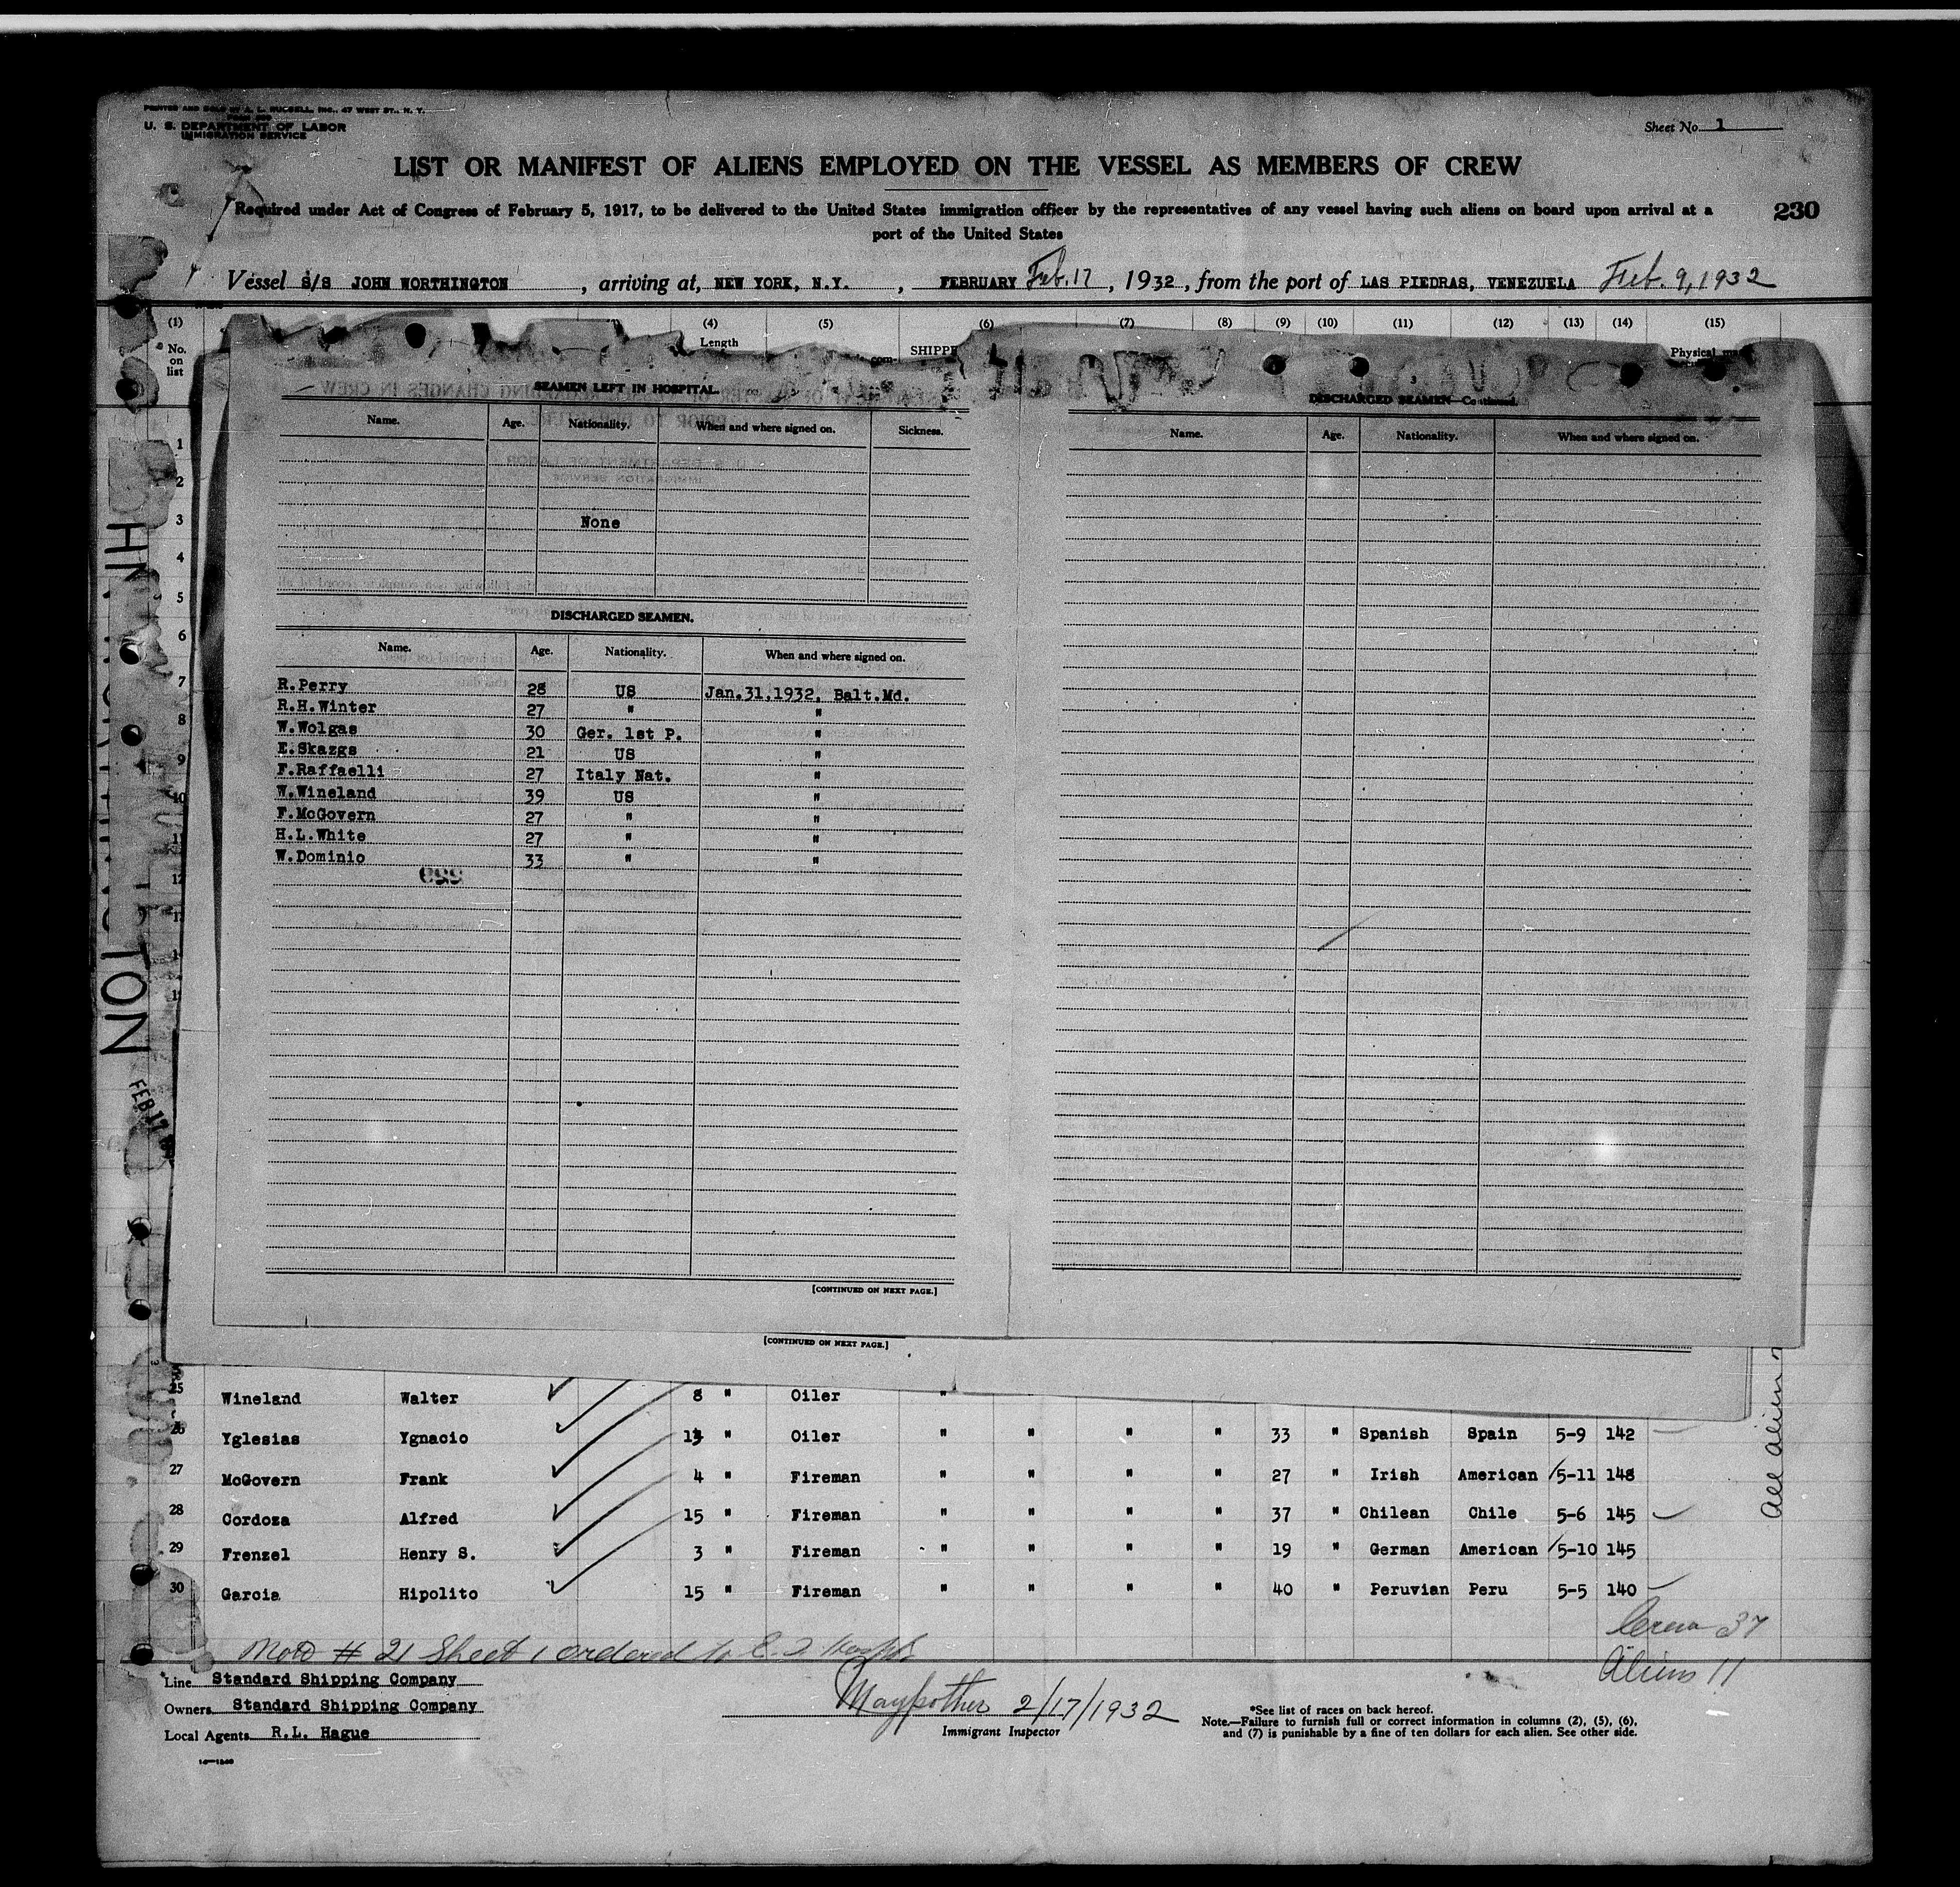 PRINTED AND SOLD BY A. L. RUSSELL, INC., 47 WEST ST., N. Y.
U. S. DEPARTMENT OF LABOR
IMMIGRATION SERVICE
Sheet No. 1
LIST OR MANIFEST OF ALIENS EMPLOYED ON THE VESSEL AS MEMBERS OF CREW
230
Required under Act of Congress of February 5, 1917, to be delivered to the United States immigration officer by the representatives of any vessel having such aliens on board upon arrival at a
port of the United States
Vessel S/S JOHN WORTHINGTON, arriving at, NEW YORK, N.Y., FEBRUARY Feb. 17, 1932, from the port of LAS PIEDRAS, VENEZUELA Feb. 9, 1932
(1) (4) (5) (6) (7) (8) (9) (10) (11) (12) (13) (14) (15)
No. on list Length com- SHIPPE Physical
SEAMEN LEFT IN HOSPITAL.
Name. Age. Nationality. When and where signed on. Sickness.
None
DISCHARGED SEAMEN.
Name. Age. Nationality. When and where signed on.
R.Perry 28 US Jan.31,1932, Balt.Md.
R.H.Winter 27 " "
W.Wolgas 30 Ger. 1st P. "
E.Skazgs 21 US "
F.Raffaelli 27 Italy Nat. "
W.Wineland 39 US "
F.McGovern 27 " "
H.L.White 27 " "
W.Dominio 33 " "
[CONTINUED ON NEXT PAGE.]
3
DISCHARGED SEAMEN—Continued.
Name. Age. Nationality. When and where signed on.
[CONTINUED ON NEXT PAGE.]
1
2
3
4
5
6
7
8
9
10
11
12
TON
FEB 17
25 Wineland Walter 8 " Oiler "
26 Yglesias Ygnacio 13 " Oiler " " " " 33 " Spanish Spain 5-9 142
27 McGovern Frank 4 " Fireman " " " " 27 " Irish American 5-11 148
28 Cordoza Alfred 15 " Fireman " " " " 37 " Chilean Chile 5-6 145
29 Frenzel Henry S. 3 " Fireman " " " " 19 " German American 5-10 145
30 Garcia Hipolito 15 " Fireman " " " " 40 " Peruvian Peru 5-5 140
All alien
Crew 37
Aliens 11
# 21 Sheet 1 ordered to
Line Standard Shipping Company
Owners Standard Shipping Company
Local Agents R.L. Hague
2/17/1932
Immigrant Inspector
*See list of races on back hereof.
Note.—Failure to furnish full or correct information in columns (2), (5), (6),
and (7) is punishable by a fine of ten dollars for each alien. See other side.